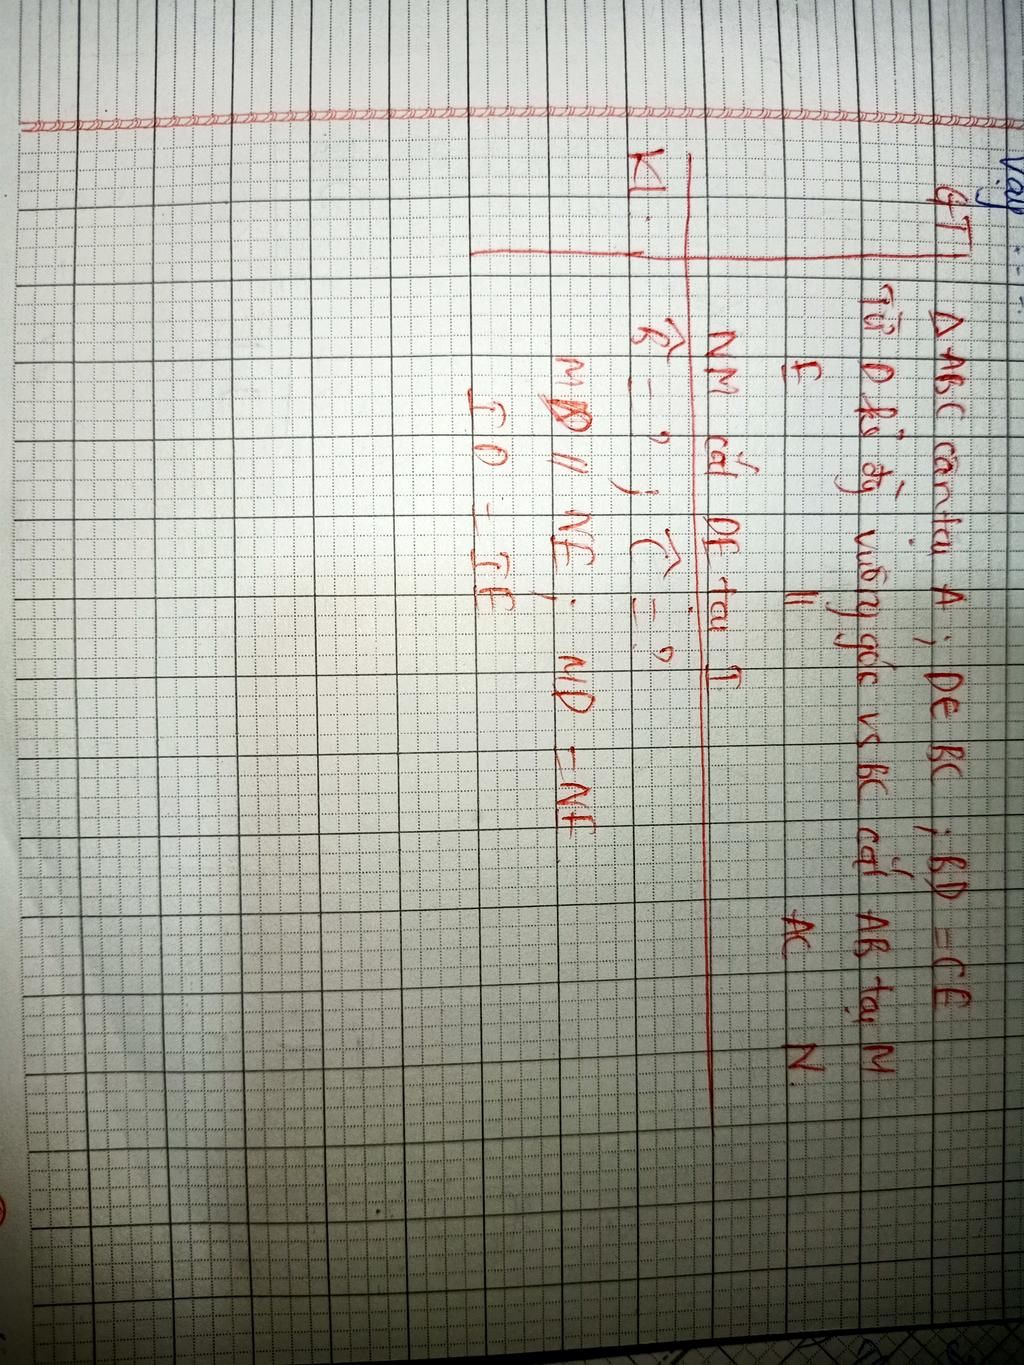 Vậy
GT ΔABC cân tại A ; D∈ BC ; BD = CE
Từ D kẻ đg vuông góc vs BC cắt AB tại M
E " AC N.
NM cắt DE tại I
KL. B̂ = ? ; Ĉ = ?
MD // NE ; MD = NE
ID = IE